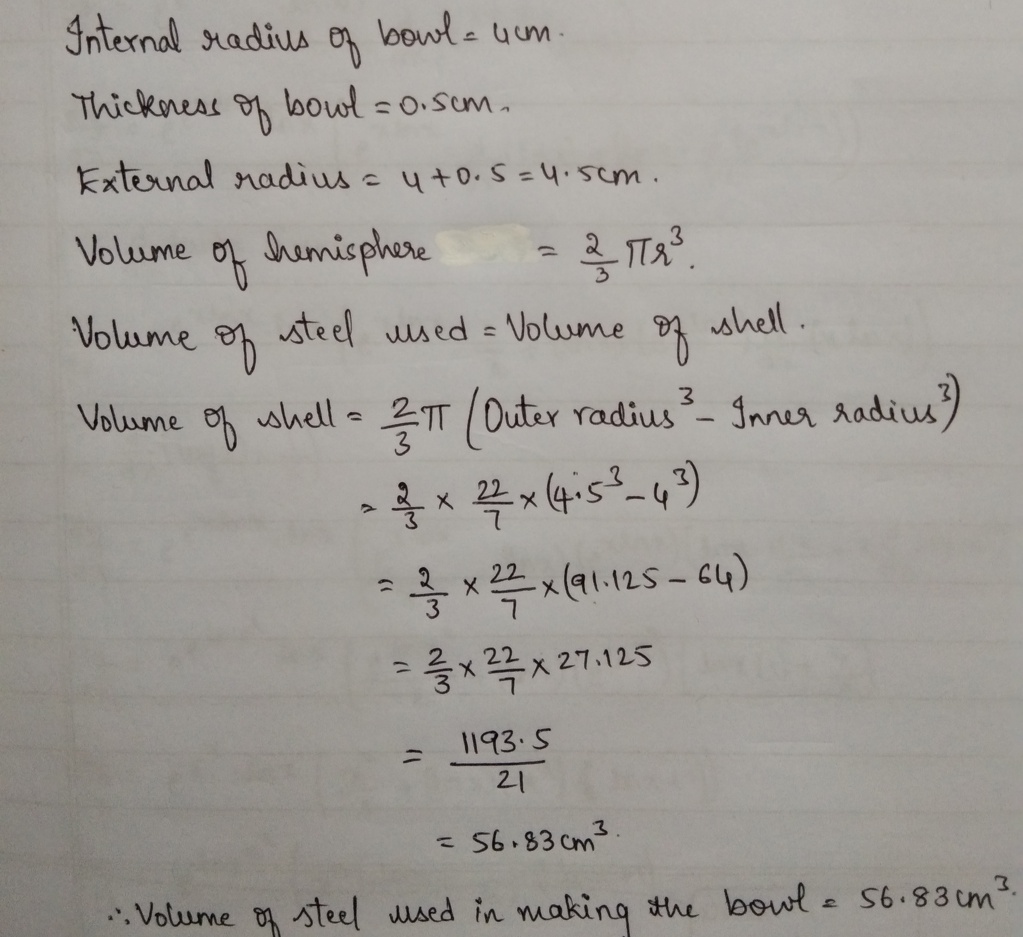 Internal radius of bowl = 4cm.
Thickness of bowl = 0.5cm.
External radius = 4+0.5 = 4.5cm.
Volume of hemisphere = 2/3 πr³.
Volume of steel used = Volume of shell.
Volume of shell = 2/3 π (Outer radius³ - Inner radius³)
= 2/3 × 22/7 × (4.5³ - 4³)
= 2/3 × 22/7 × (91.125 - 64)
= 2/3 × 22/7 × 27.125
= 1193.5/21
= 56.83 cm³.
∴ Volume of steel used in making the bowl = 56.83 cm³.